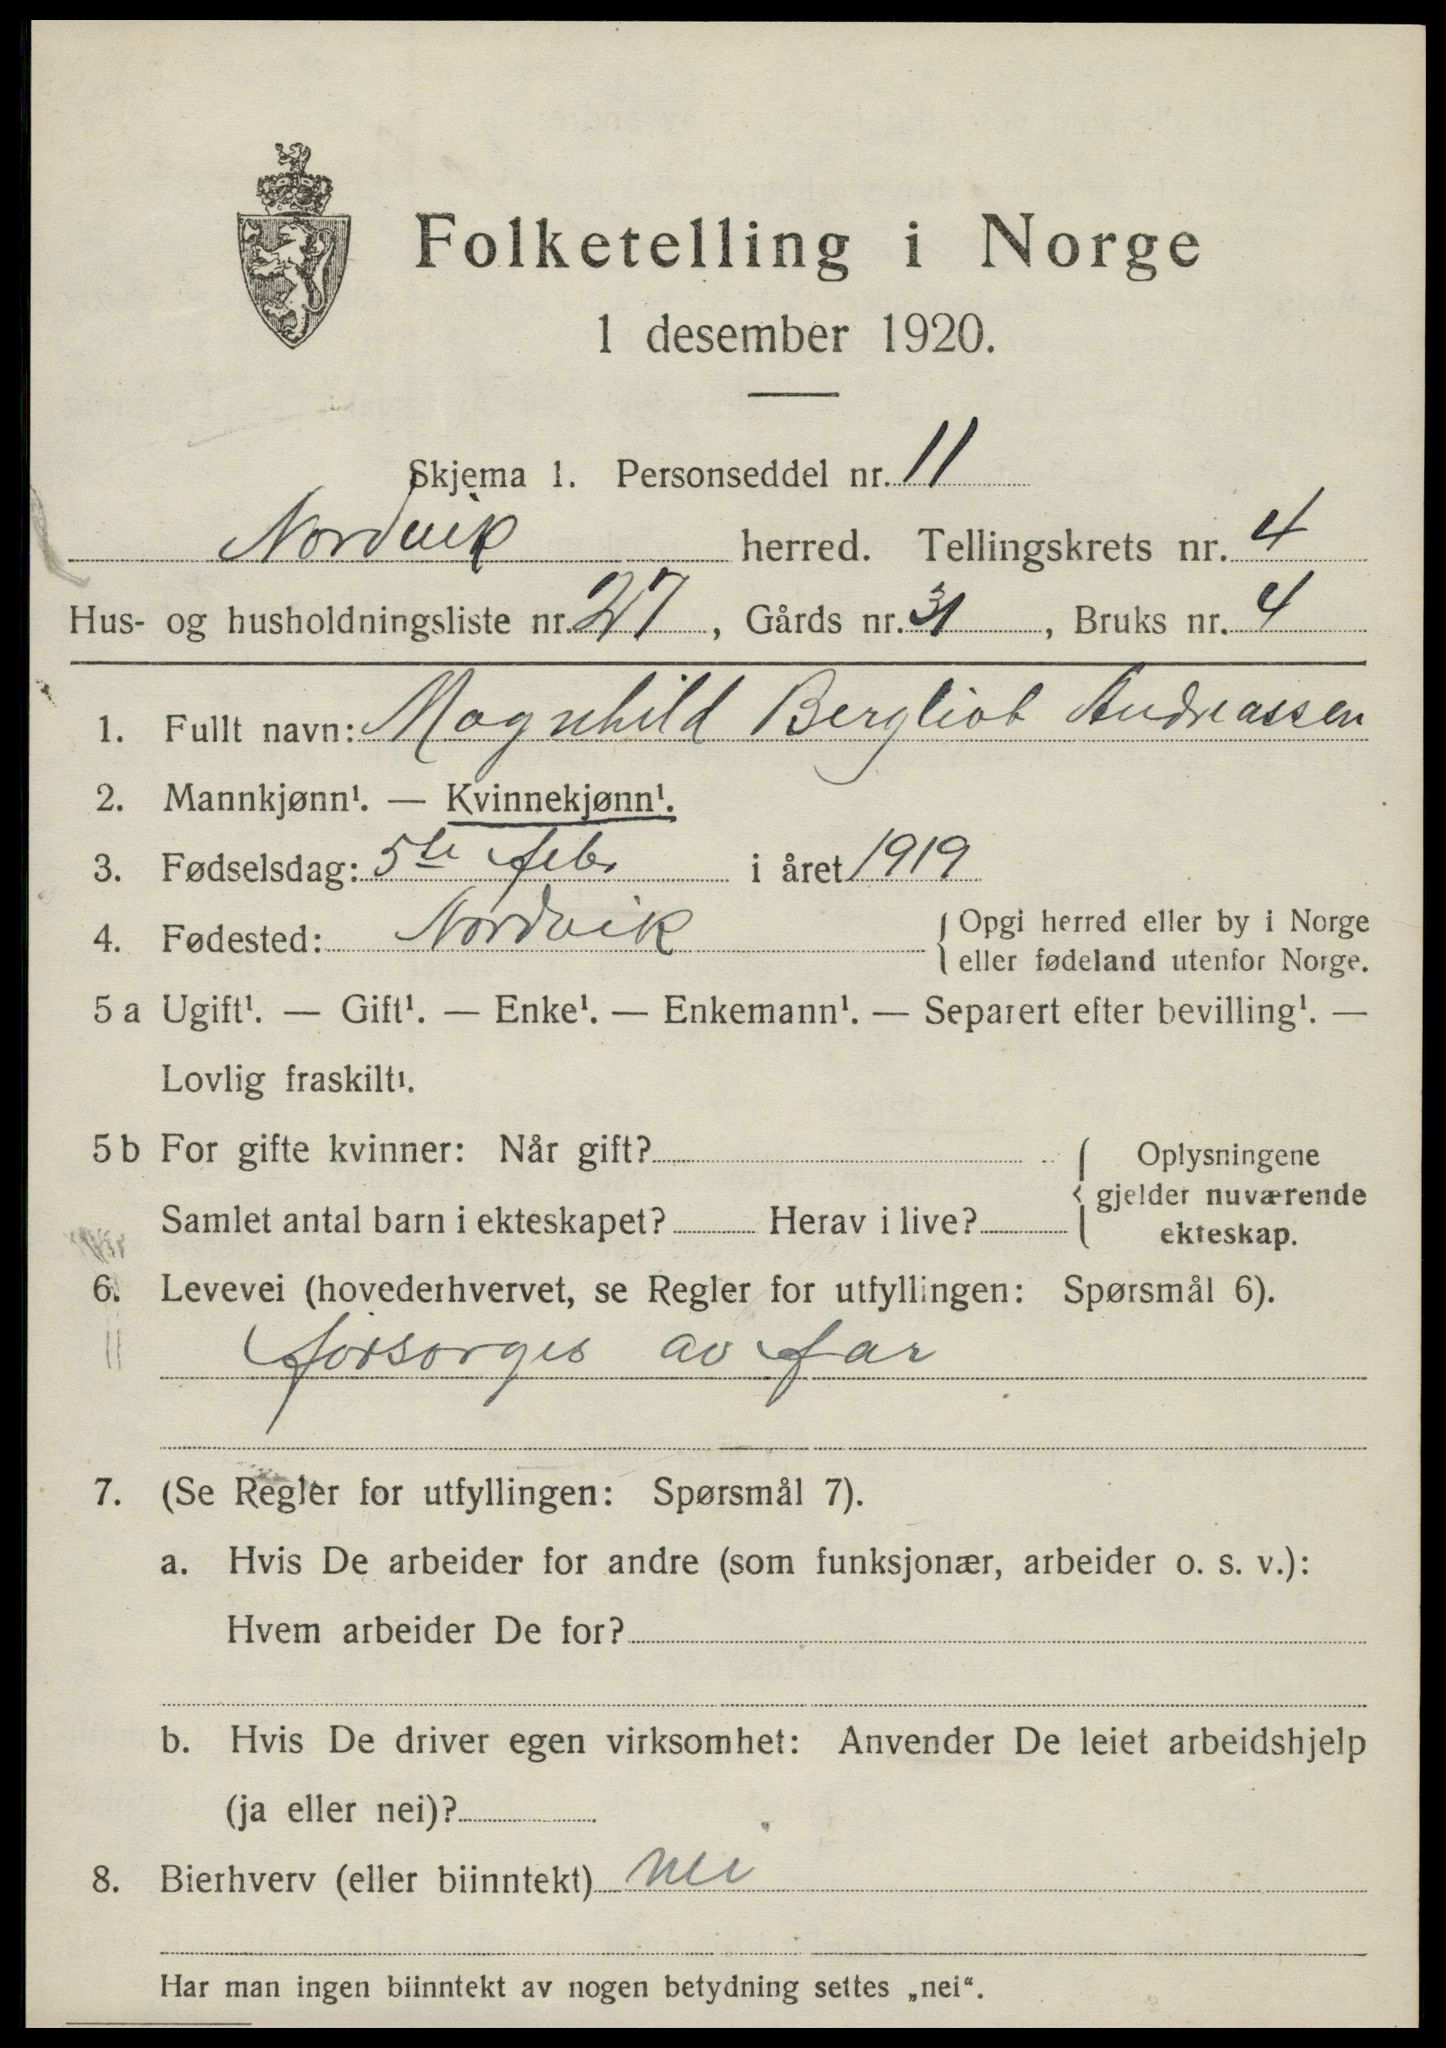 Folketelling i Norge
1 desember 1920.
Skjema 1. Personseddel nr. 11
Nordvik herred. Tellingskrets nr. 4
Hus- og husholdningsliste nr. 27, Gårds nr. 31, Bruks nr. 4
1. Fullt navn: Magnhild Bergliot Andreassen
2. Mannkjønn¹. — Kvinnekjønn¹.
3. Fødselsdag: 5te febr i året 1919
4. Fødested: Nordvik { Opgi herred eller by i Norge
eller fødeland utenfor Norge.
5 a Ugift¹. — Gift¹. — Enke¹. — Enkemann¹. — Separert efter bevilling¹. —
Lovlig fraskilt¹.
5 b For gifte kvinner: Når gift? { Oplysningene
gjelder nuværende
Samlet antal barn i ekteskapet? Herav i live? ekteskap.
6. Levevei (hovederhvervet, se Regler for utfyllingen: Spørsmål 6).
forsørges av far
7. (Se Regler for utfyllingen: Spørsmål 7).
a. Hvis De arbeider for andre (som funksjonær, arbeider o. s. v.):
Hvem arbeider De for?
b. Hvis De driver egen virksomhet: Anvender De leiet arbeidshjelp
(ja eller nei)?
8. Bierhverv (eller biinntekt) nei
Har man ingen biinntekt av nogen betydning settes „nei“.